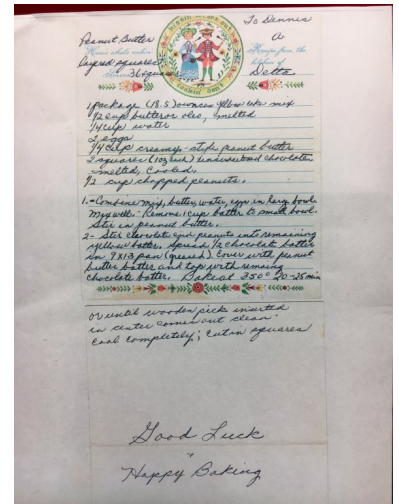 To Dennis
Peanut Butter
Here's what's cookin
A
Recipe from the
kitchen of
layered squares
36 squares
Delta
cookin' out!
1 package (18.5) ounces yellow cake mix
1/2 cup butter or oleo, melted
1/4 cup water
2 eggs
1/4 cup creamy-style peanut butter
2 squares (1 oz each) unsweetened chocolate
melted, cooled.
1/2 cup chopped peanuts.
1.- Combine mix, butter, water, eggs in large bowl
Mix well - Remove 1 cup batter to small bowl.
Stir in peanut butter.
2- Stir chocolate and peanuts into remaining
yellow batter. Spread 1/2 chocolate batter
in 9X13 pan (greased). Cover with peanut
butter batter and top with remaing
chocolate batter. Bake at 350° 20-25 min
or until wooden pick inserted
in center comes out clean -
cool completely; cut in squares
Good Luck
"
Happy Baking